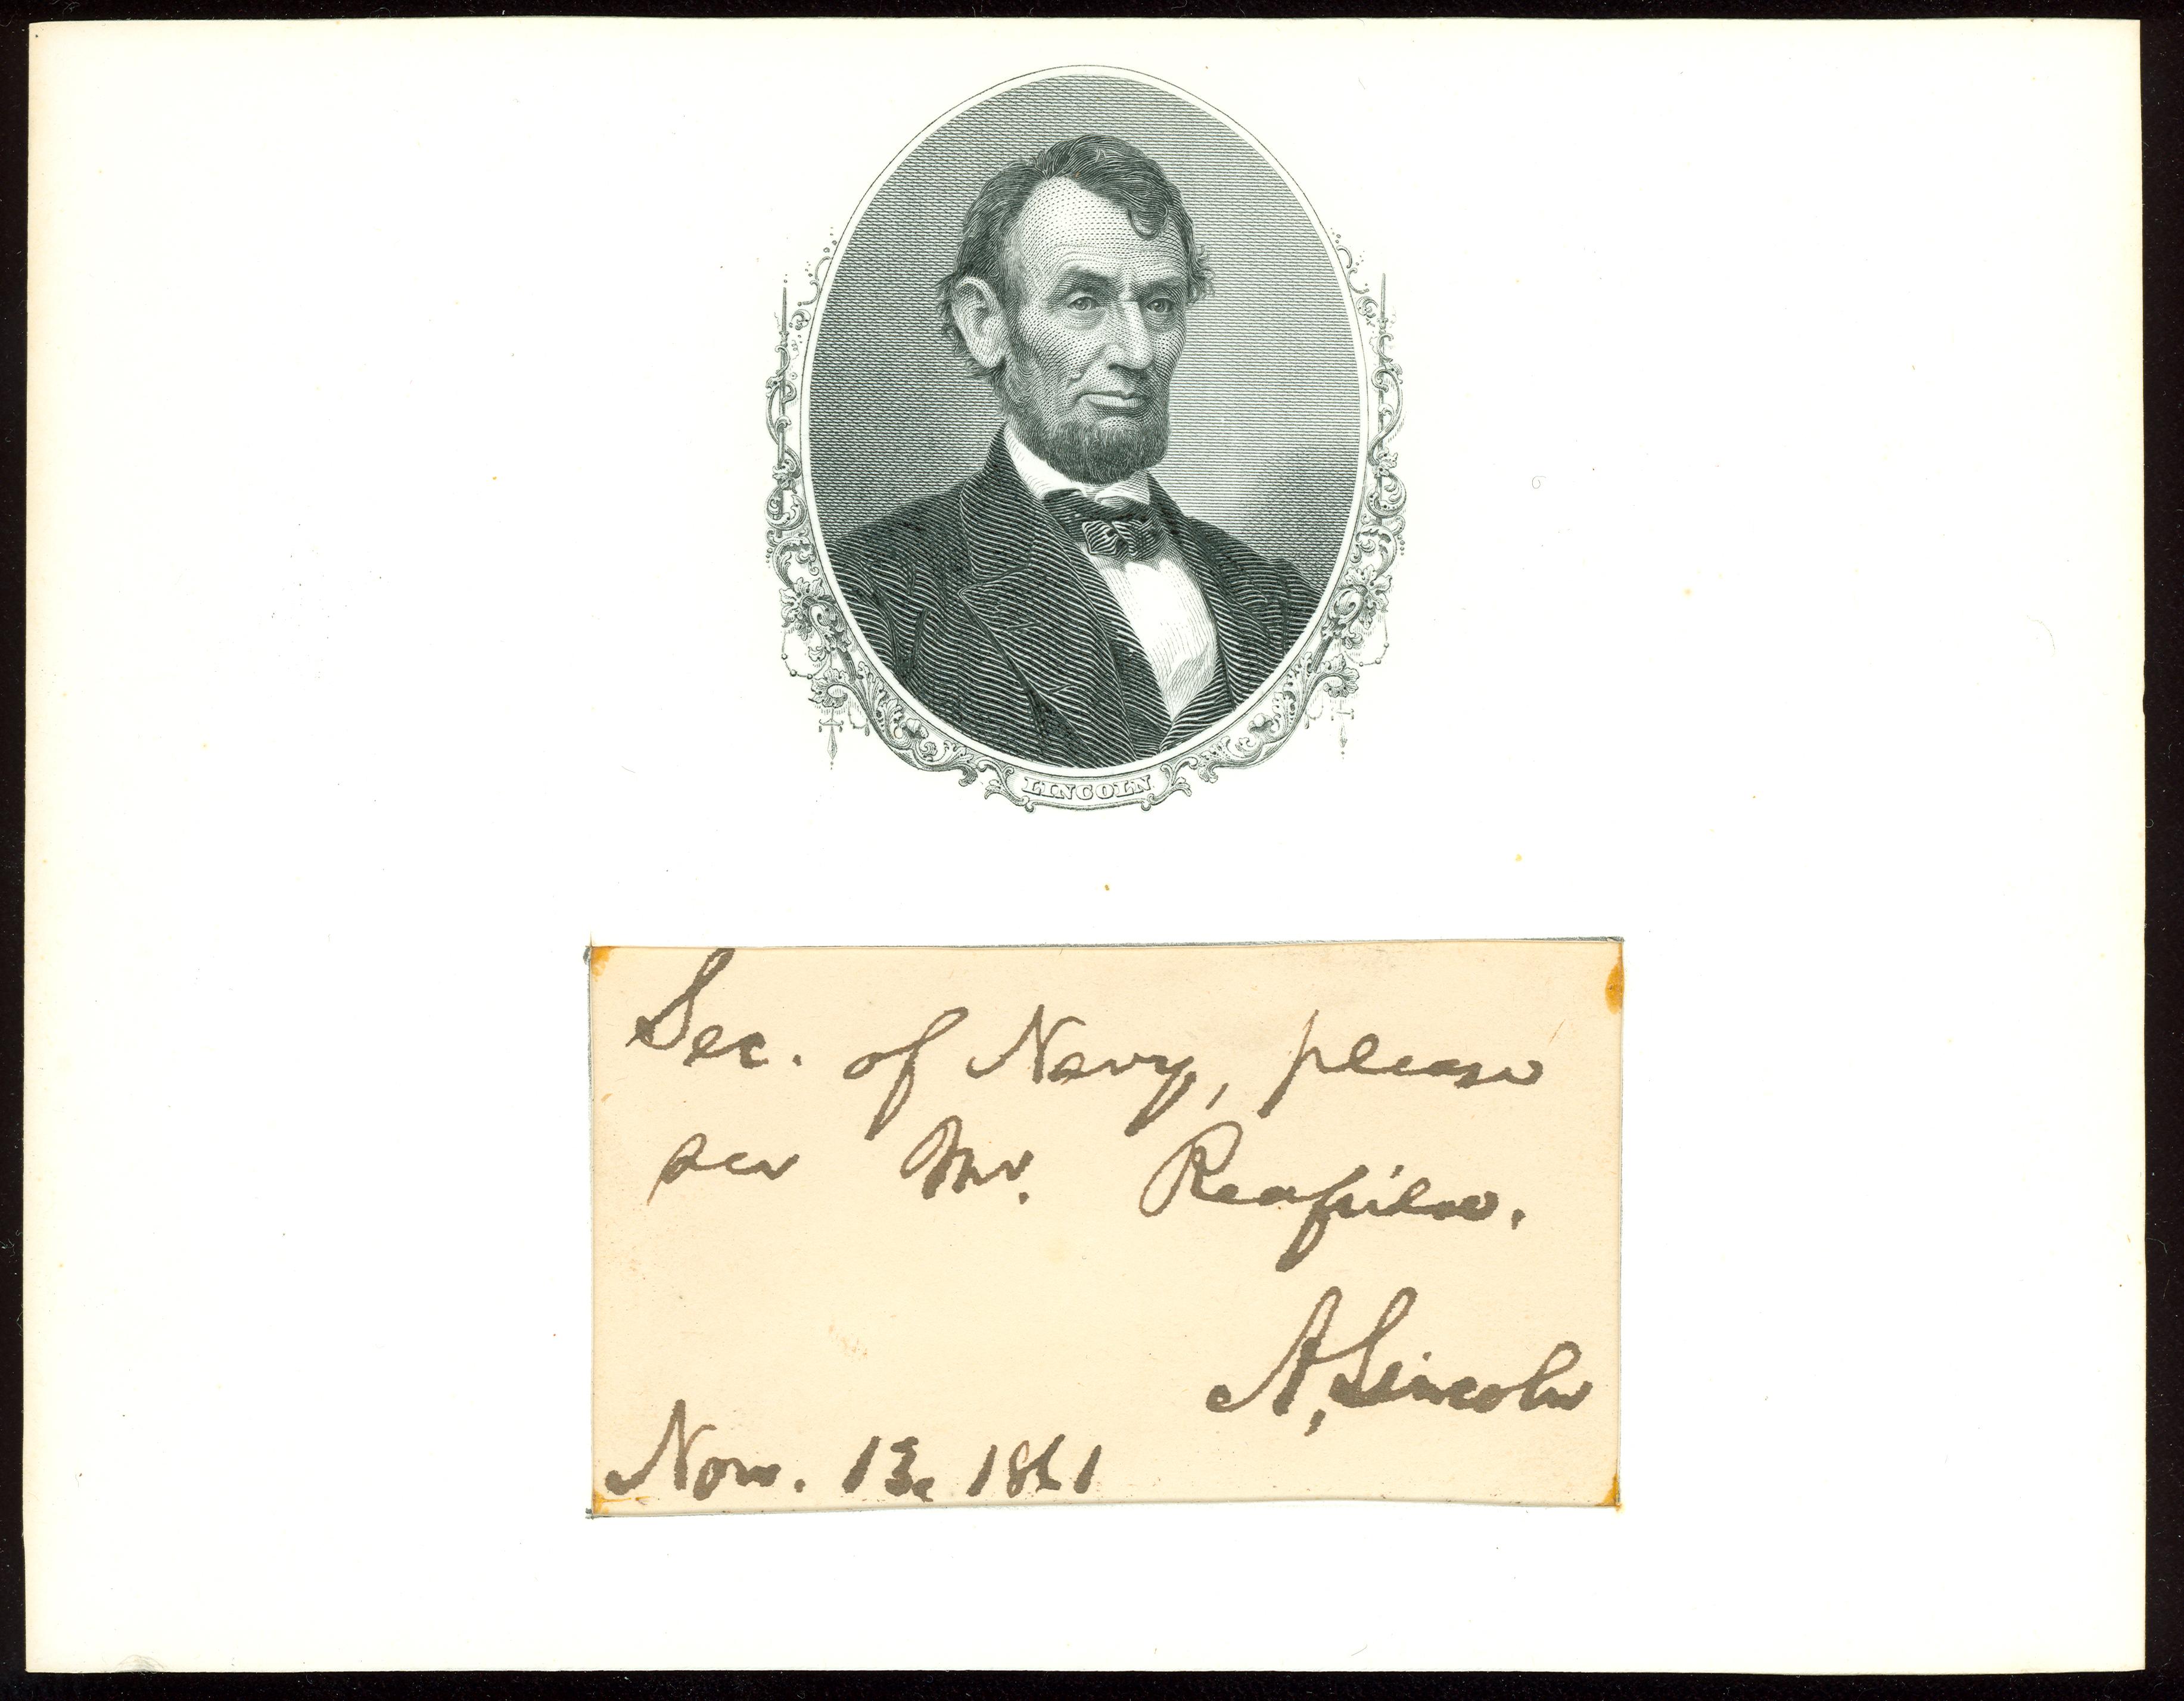 LINCOLN
Sec. of Navy, please
see Mr.
A. Lincoln
Nov. 13. 1861